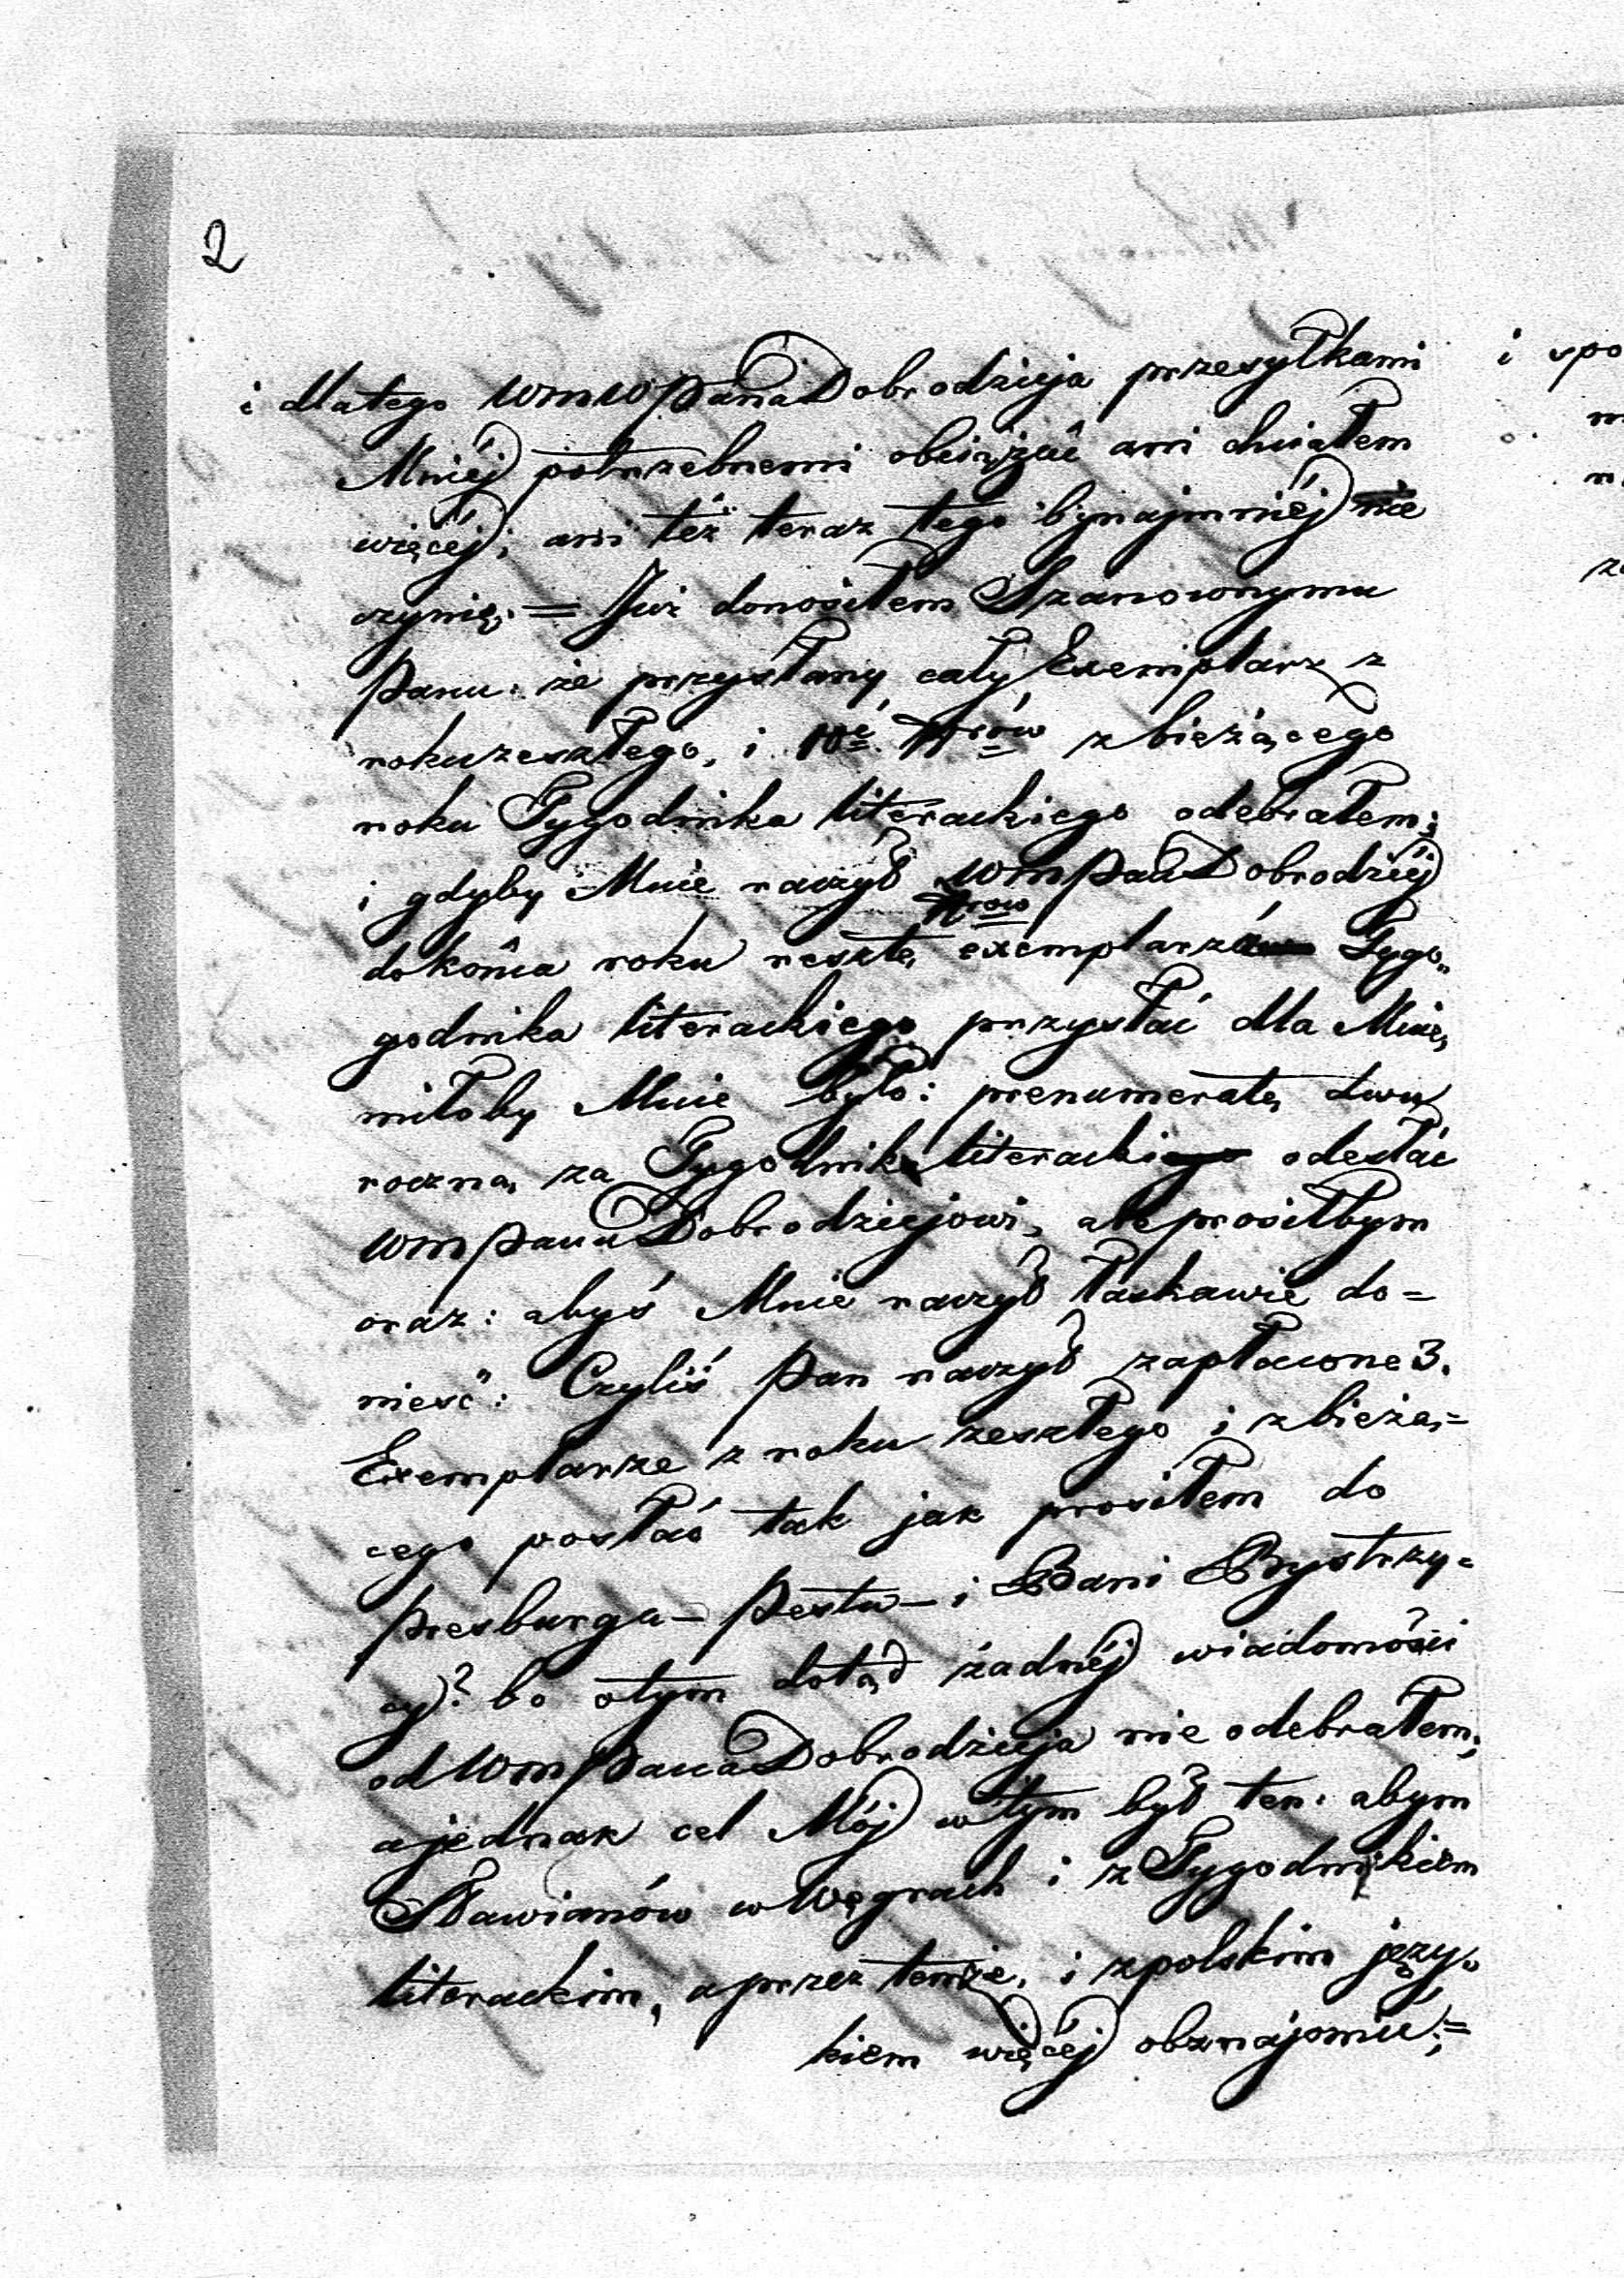 2
i dlatego WmWPana Dobrodzieja przesyłkami
Mniéj potrzebnemi obciążać ani chciałem
więcéj; ani też teraz tego bynajmniéj nie
czynię. = Już donosiłem Szanownymu
Panu: że przysłany cały Exemplarz z
roku zeszłego, i 10é Nrów z bieżącego
roku Tygodnika literackiego odebrałem;
i gdyby Mnie raczył WmPan Dobrodziéj
Nrów
do końca roku resztę exemplarza Tygo„
godnika literackiego przysłać dla Mnie,
miłoby Mnie było: prenumeratę dwu
roczną za Tygodnik literacki odesłać
WmPanu Dobrodziejowi, ale prosiłbym
oraz: abyś Mnie raczył łaskawie do=
nieść: Czyliś Pan raczył zapłacone 3.
Exemplarze z roku zeszłego i z bieżą=
cego posłać tak jak prosiłem do
Presburga – Pestu – i Bani Bystrzy=
cy? bo o tym dotąd żadnéj wiadomości
od WmPana Dobrodzieja nie odebrałem;
a jednak cel Mój w tym był ten: abym
Sławianów w Węgrach i z Tygodnikiem
literackim, a przez tenże, i z polskim języ„
kiem więcéj obznajomić; =
i spo
m
n
ze